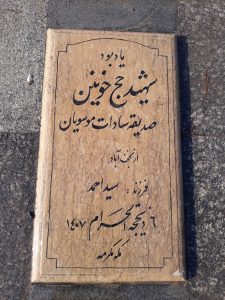 یادبود
شهید حج خونین
صدیقه سادات موسویان
از نجف آباد
فرزند: سید احمد
۶ ذیحجة الحرام ۱۴۰۷
مکه مکرمه